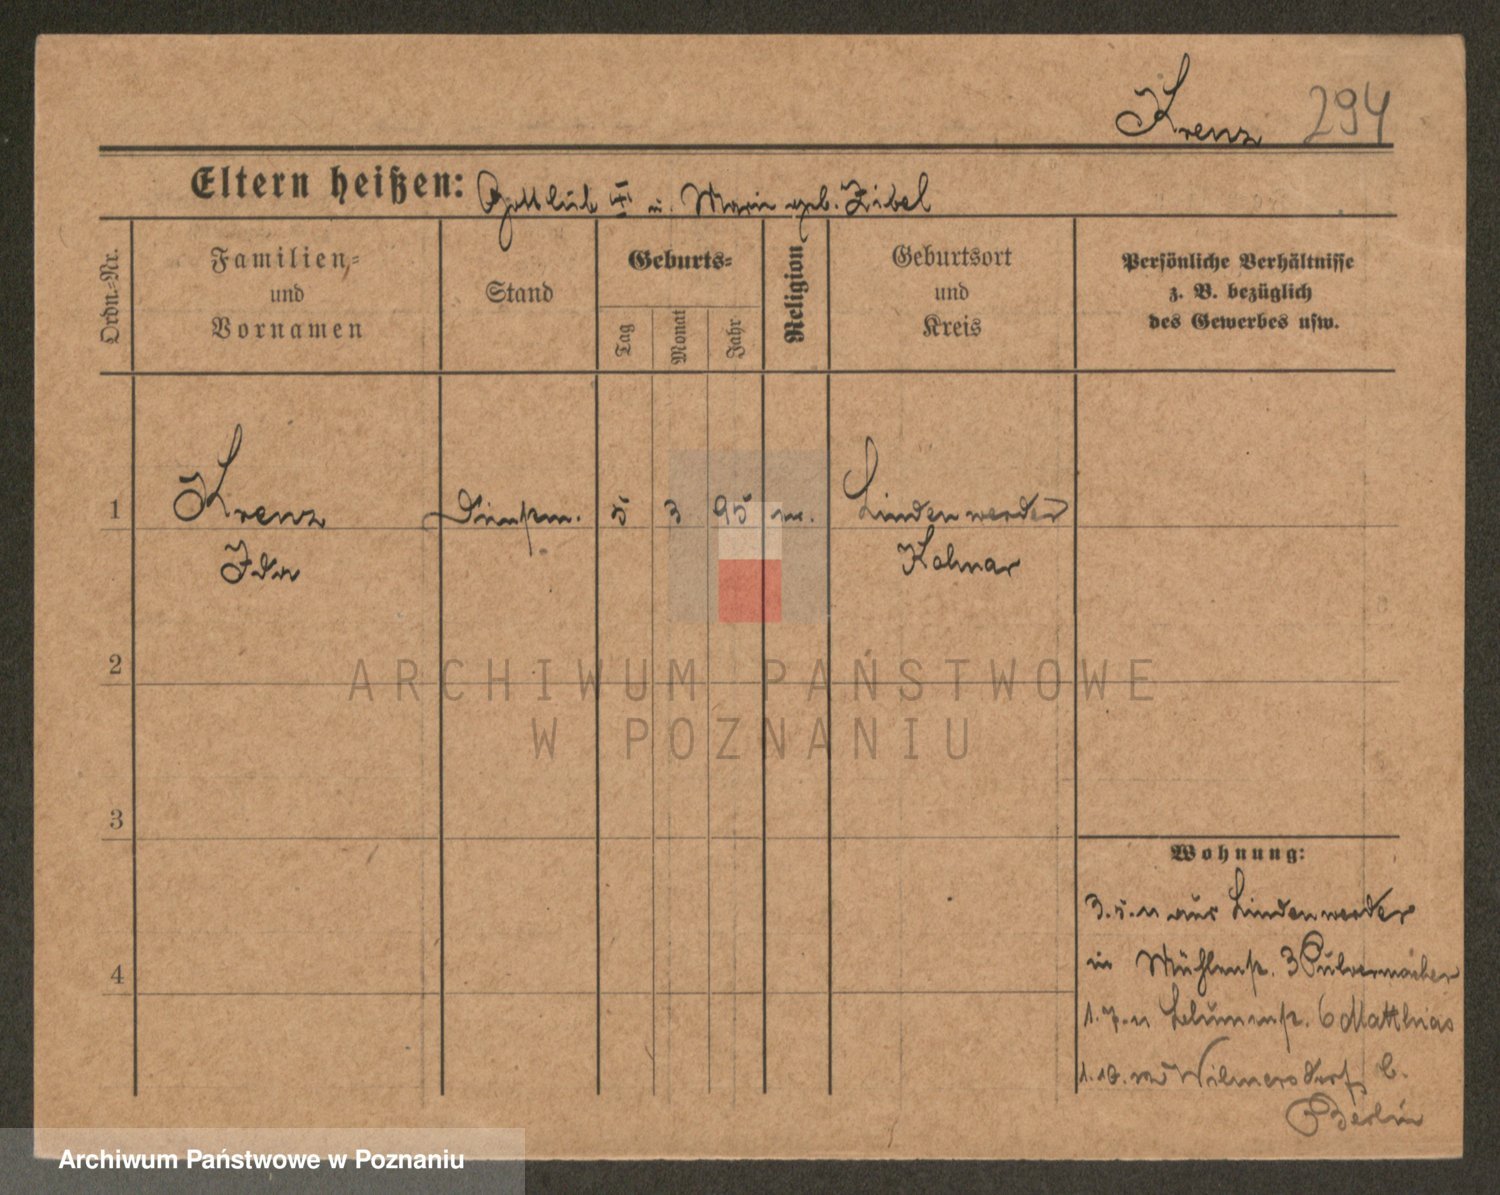 Krenz 294
Eltern heißen: Gottlieb III u. Marie geb. Zibel
Ordn.-Nr.
Familien-
und
Vornamen
Stand
Geburts-
Tag
Monat
Jahr
Religion
Geburtsort
und
Kreis
Persönliche Verhältnisse
z. B. bezüglich
des Gewerbes usw.
1 Krenz 5 3 95 Lindenwerder
Ida Kolmar
2
3
4
Wohnung:
3.5.11 aus Lindenwerder
in Mühlenstr. 3 Pulvermacher
1.7.11 6 Matthias
1.10. Wilmersdorf b.
Berlin
ARCHIWUM PAŃSTWOWE
W POZNANIU
Archiwum Państwowe w Poznaniu